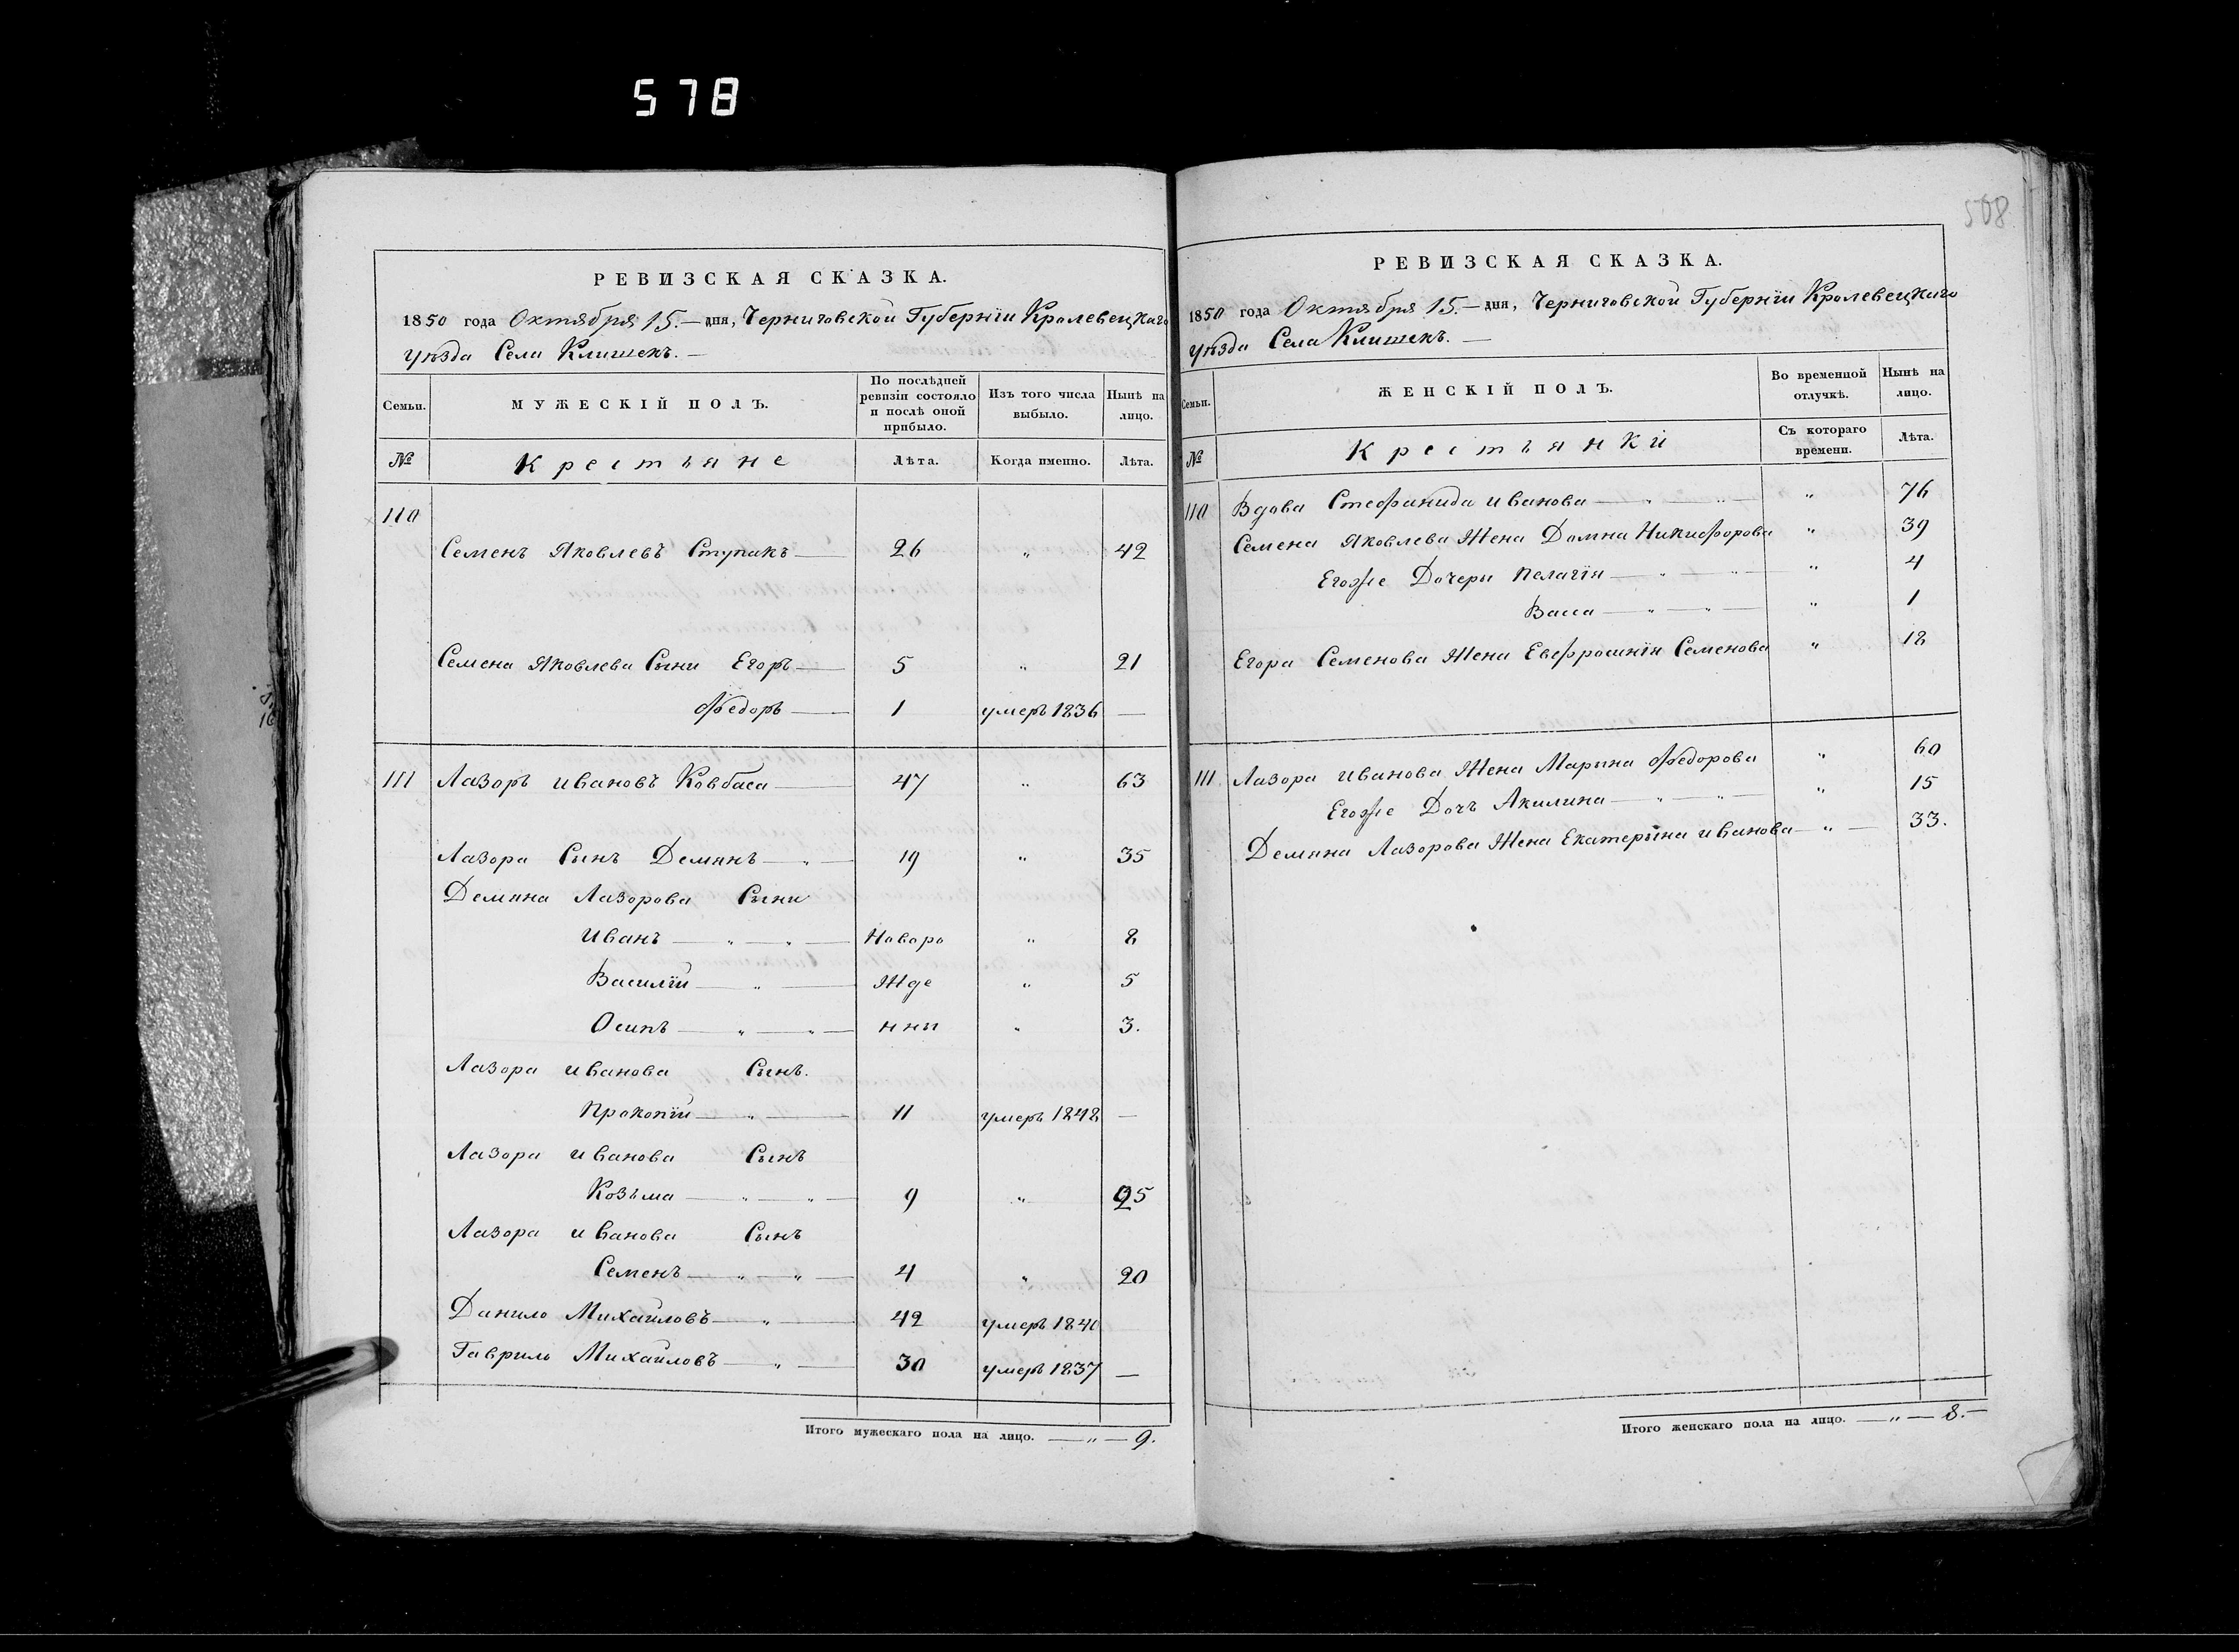 578
РЕВИЗСКАЯ СКАЗКА.
1850 года Октября 15.— дня, Черниговской Губернiи Кролевецкаго
уѣзда Села Клишекъ. —
Семьи.
МУЖЕСКIЙ ПОЛЪ.
По послѣдней ревизiи состояло и послѣ оной прибыло.
Изъ того числа выбыло.
Нынѣ на лицо.
№ Крестьяне Лѣта. Когда именно. Лѣта.
110
Семенъ Яковлевъ Ступакъ — 26 " 42
Семена Яковлева Сыни Егоръ — 5 " 21
Федоръ — 1 умеръ 1836 —
111 Лазоръ Ивановъ Ковбаса — 47 " 63
Лазора Сынъ Демянъ — " 19 " 35
Демяна Лазорова Сыни
Иванъ — " — " — Новоро " 8
Василiй — " — жде " 5
Осипъ — " — " — нны " 3.
Лазора Иванова Сынъ.
Прокопiй — " — 11 умеръ 1848 —
Лазора Иванова Сынъ
Козьма — " — " — 9 " 25
Лазора Иванова Сынъ
Семенъ — " — " — 4 " 20
Данило Михайловъ — " — 42 умеръ 1840
Гаврило Михайловъ — " — 30 умеръ 1837 —
Итого мужескаго пола на лицо. — " — 9.
508
РЕВИЗСКАЯ СКАЗКА.
1850 года Октября 15.— дня, Черниговской Губернiи Кролевецкаго
уѣзда Села Клишекъ. —
Семьи.
ЖЕНСКIЙ ПОЛЪ.
Во временной отлучкѣ.
Нынѣ на лицо.
№ Крестьянки Съ котораго времени. Лѣта.
110 Вдова Стефанида Иванова — " — " — " 76
Семена Яковлева Жена Домна Никифорова " 39
Егоже Дочери Пелагiя — " — " — " 4
Васса — " — " — " 1
Егора Семенова Жена Евфросинiя Семенова " 18
111 Лазора Иванова Жена Марина Федорова " 60
Егоже Дочъ Акилина — " — " — " 15
Демяна Лазорова Жена Екатерына Иванова — " — 33.
Итого женскаго пола на лицо. — " — 8. —